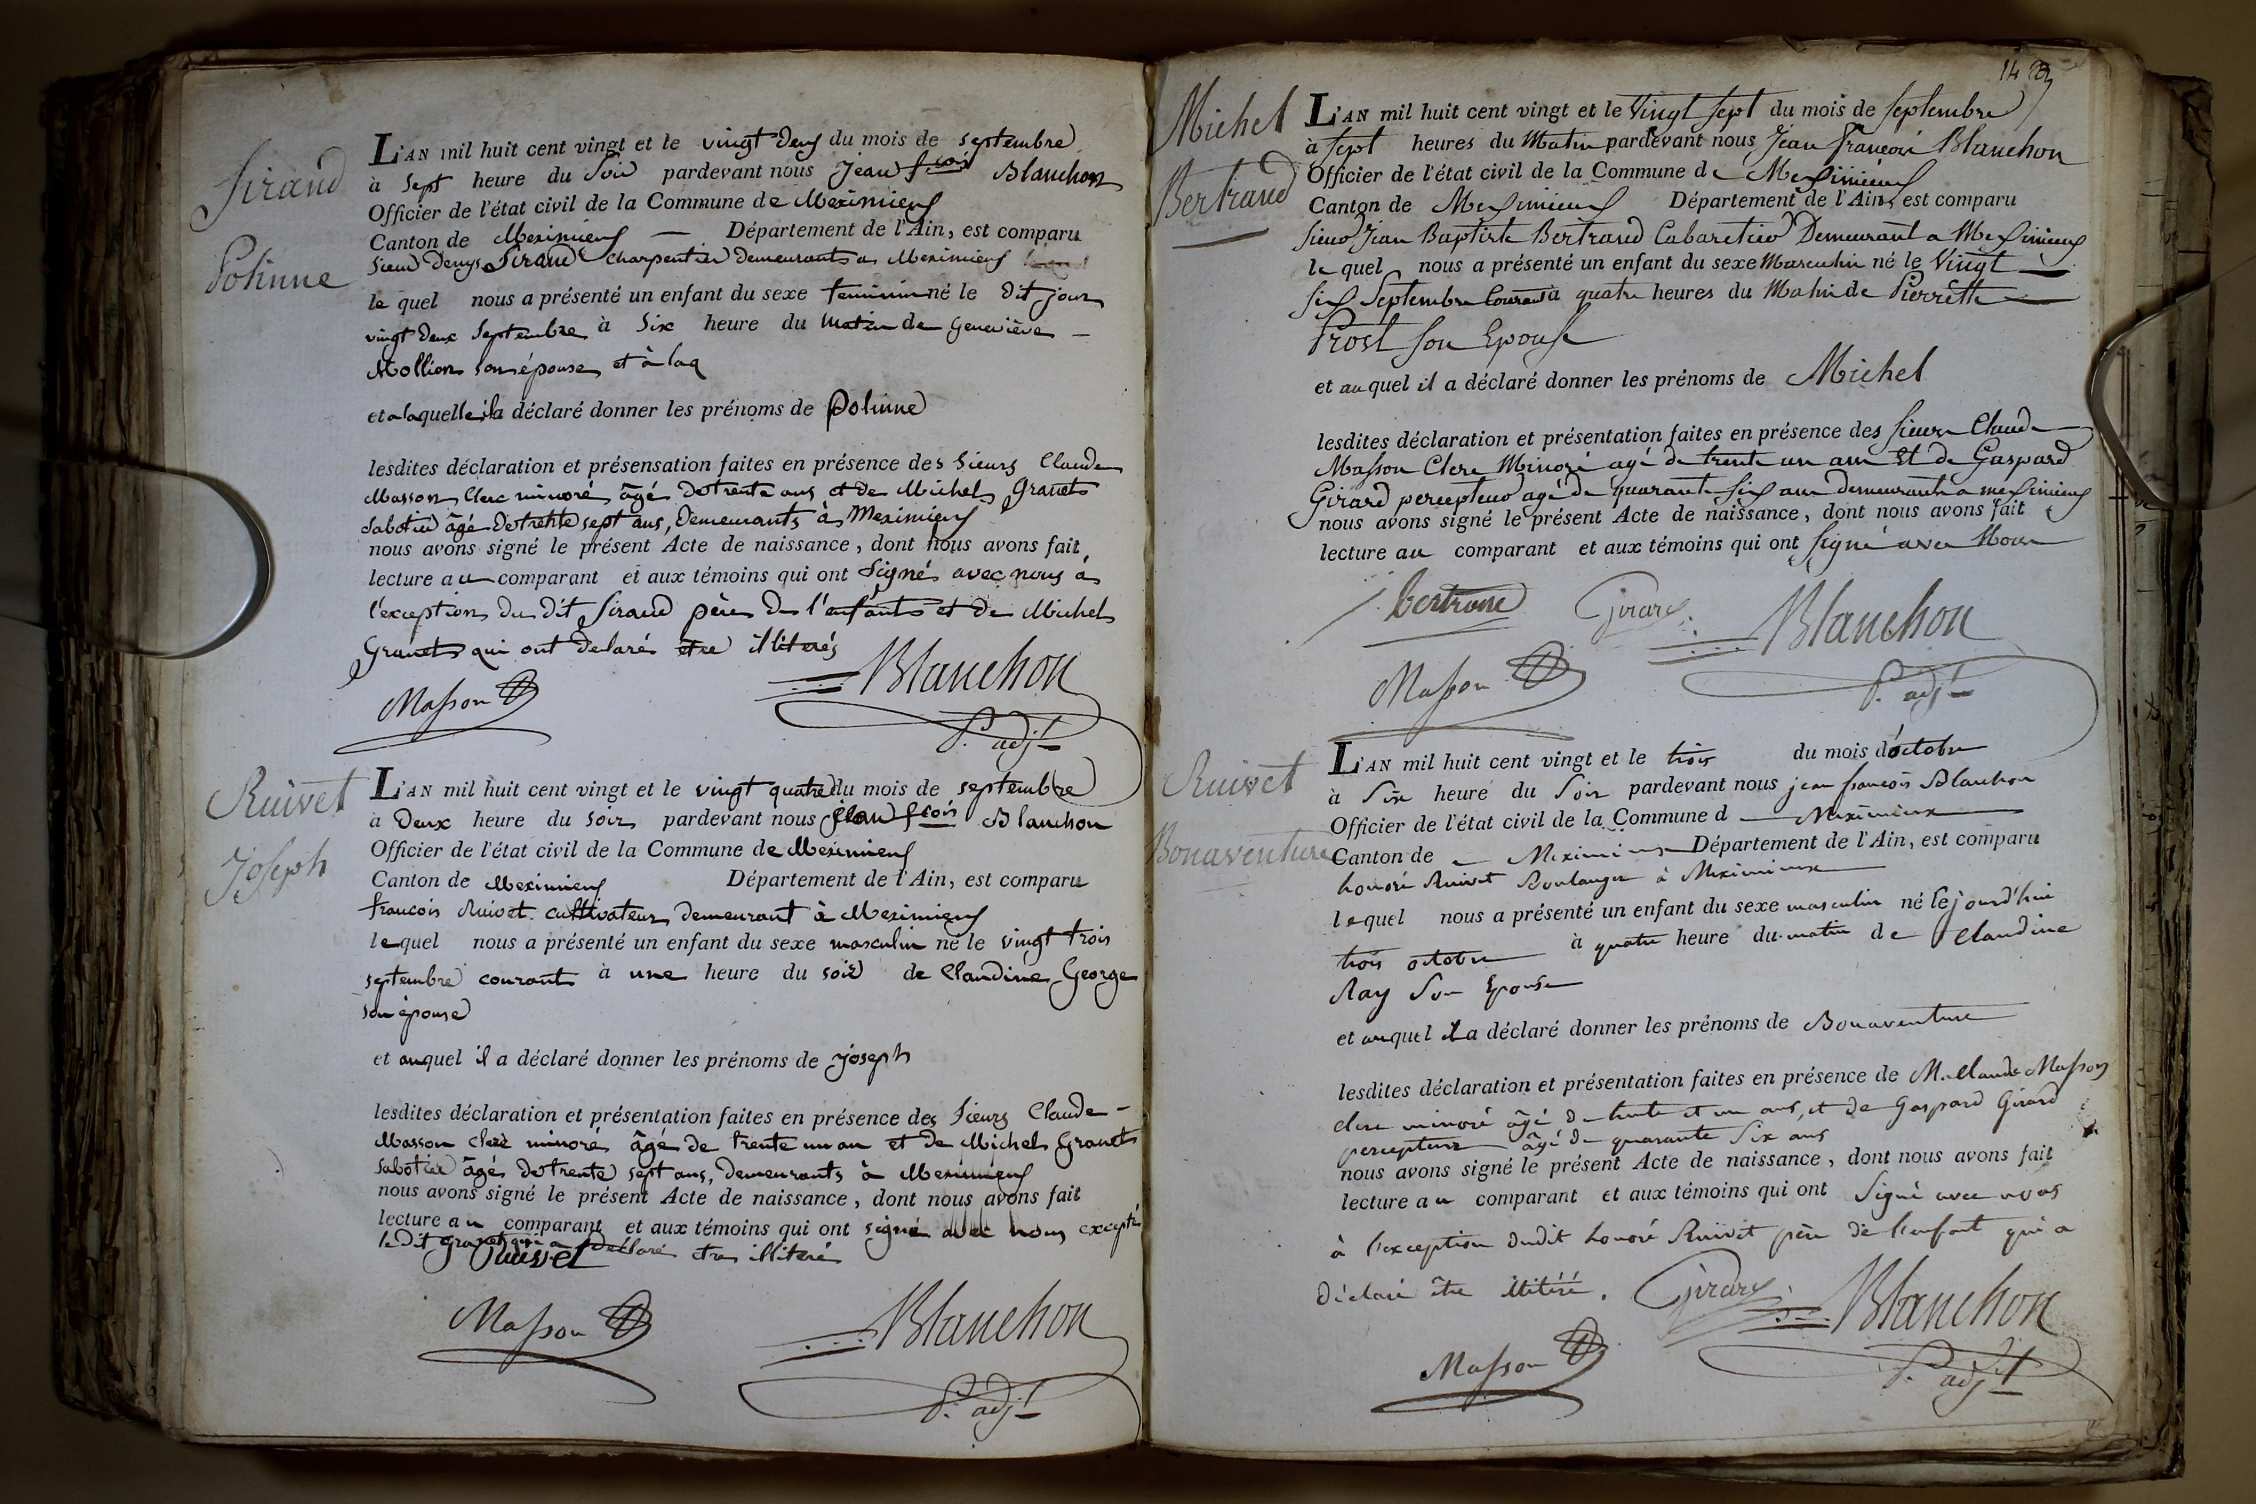 Siraud
Polinne
L'AN mil huit cent vingt et le vingt deux du mois de septembre
à sept heure du Soir pardevant nous Jean fcois Blanchon
Officier de l'état civil de la Commune de Meximieux
Canton de Meximieux — Département de l'Ain, est comparu
Sieur Denys Siraud charpentier demeurants a Meximieux
le quel nous a présenté un enfant du sexe feminin né le dit jour
vingt deux septembre à six heure du matin de Geneviève —
Mollion son épouse et à laq
et a laquelle il a déclaré donner les prénoms de Polinne
lesdites déclaration et présensation faites en présence des Sieurs Claude
Masson Clerc minoré âgé de trente ans et de Michel Granet
Sabotier âgé de trente sept ans, demeurants à Meximieux
nous avons signé le présent Acte de naissance, dont nous avons fait
lecture au comparant et aux témoins qui ont Signé avec nous à
l'exception du dit Siraud père de l'enfant et de Michel
Granet qui ont declaré etre illiterés
Masson Blanchon
P. adjt
Ruivet
Joseph
L'AN mil huit cent vingt et le vingt quatre du mois de septembre
à Deux heure du soir pardevant nous jean fcois Blanchon
Officier de l'état civil de la Commune de Meximieux
Canton de Meximieux Département de l'Ain, est comparu
francois Ruivet cultivateur demeurant à Meximieux
lequel nous a présenté un enfant du sexe masculin né le vingt trois
septembre courant à une heure du soir de Claudine George
son épouse
et auquel il a déclaré donner les prénoms de joseph
lesdites déclaration et présentation faites en présence des Sieurs Claude —
Masson clerc minoré âgé de trente un an et de Michel Granet
Sabotier âgé de trente sept ans, demeurants à Meximieux
nous avons signé le présent Acte de naissance, dont nous avons fait
lecture au comparant et aux témoins qui ont signé avec nous excepté
le dit Granet qui a déclaré etre illiteré
Ruivet
Masson Blanchon
P. adjt
Michel
Bertrand
L'AN mil huit cent vingt et le Vingt Sept du mois de Septembre
à Sept heures du Matin pardevant nous Jean francois Blanchon
Officier de l'état civil de la Commune de Meximieux
Canton de Meximieux Département de l'Ain, est comparu
Sieur Jean Baptiste Bertrand Cabaretier Demeurant a Meximieux
le quel nous a présenté un enfant du sexe Masculin né le Vingt —
Six Septembre Courant à quatre heures du Matin de Pierrette —
Prost Son Epouse
et auquel il a déclaré donner les prénoms de Michel
lesdites déclaration et présentation faites en présence des Sieurs Claude
Masson Clerc Minoré agé de trente un an Et de Gaspard
Girard percepteur agé de quarante Six ans demeurants a meximieux
nous avons signé le présent Acte de naissance, dont nous avons fait
lecture au comparant et aux témoins qui ont Signé avec Nous
Bertrand Girard Blanchon
Masson P. adjt
Ruivet
Bonaventure
L'AN mil huit cent vingt et le trois du mois d'octobre
à Six heure du Soir pardevant nous jean françois Blanchon
Officier de l'état civil de la Commune d — Meximieux
Canton de — Meximieux Département de l'Ain, est comparu
honoré Ruivet Boulanger à Meximieux
lequel nous a présenté un enfant du sexe masculin né lejourd'hui
trois octobre à quatre heure du matin de Claudine
Ray Son Epouse
et auquel il a déclaré donner les prénoms de Bonaventure
lesdites déclaration et présentation faites en présence de M. Claude Masson
clerc minoré âgé de trente et un ans, et de Gaspard Girard
percepteur âgé de quarante Six ans
nous avons signé le présent Acte de naissance, dont nous avons fait
lecture au comparant et aux témoins qui ont Signé avec nous
à l'exception dudit honoré Ruivet père de l'enfant qui a
déclaré être illitéré. Girard Blanchon
Masson P. adjt